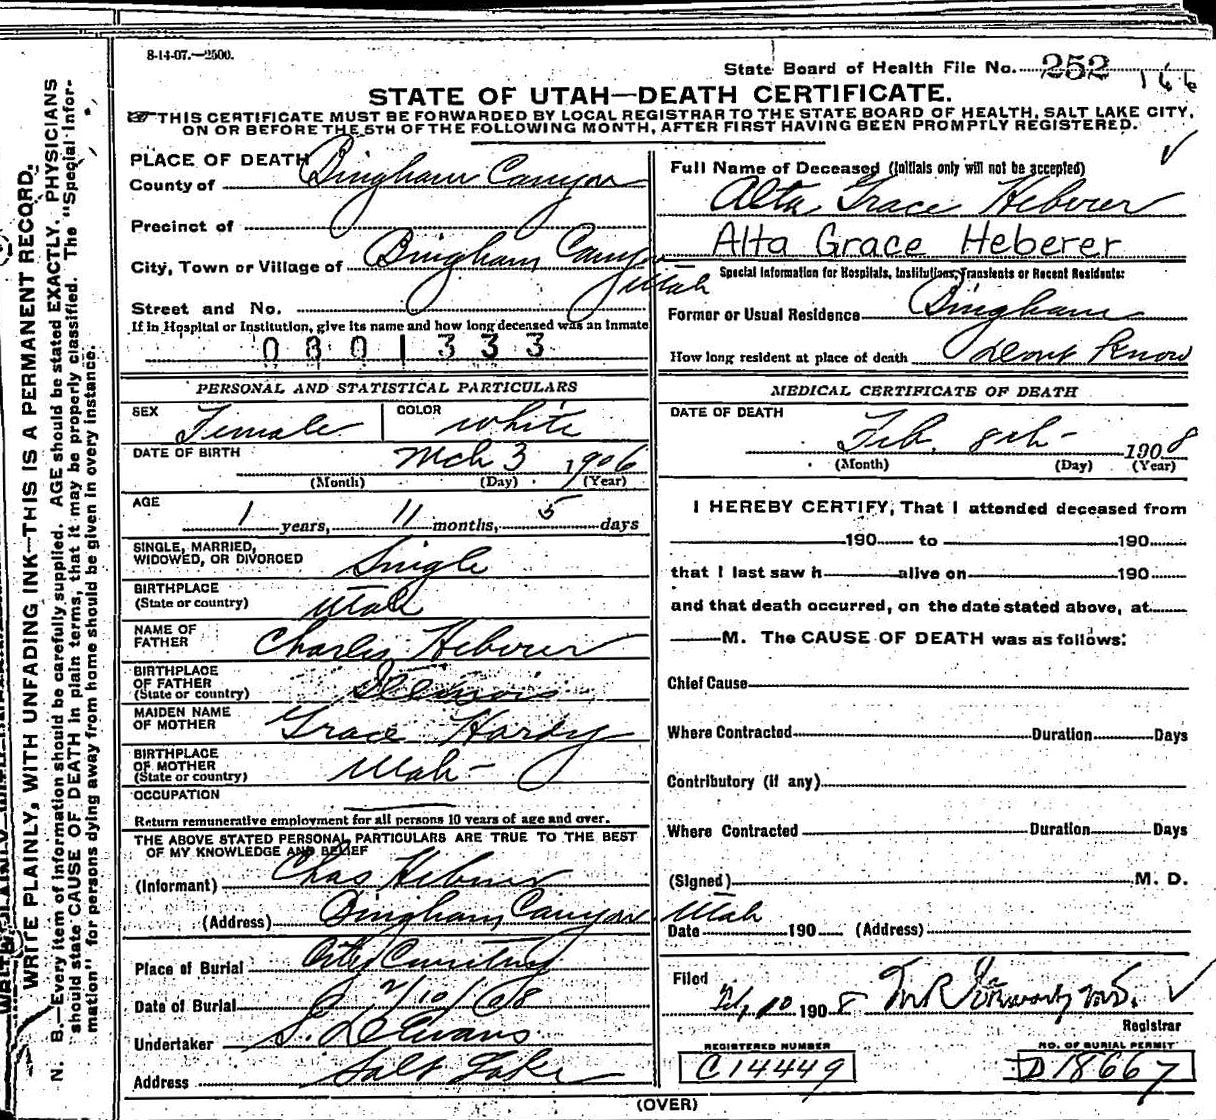 8-14-07.—2500.
State Board of Health File No. 252 166
STATE OF UTAH—DEATH CERTIFICATE.
THIS CERTIFICATE MUST BE FORWARDED BY LOCAL REGISTRAR TO THE STATE BOARD OF HEALTH, SALT LAKE CITY,
ON OR BEFORE THE 5TH OF THE FOLLOWING MONTH, AFTER FIRST HAVING BEEN PROMPTLY REGISTERED.
PLACE OF DEATH
County of Bingham Canyon
Precinct of
City, Town or Village of Bingham Canyon
Utah
Street and No.
If in Hospital or Institution, give its name and how long deceased was an Inmate
0801333
PERSONAL AND STATISTICAL PARTICULARS
SEX Female COLOR white
DATE OF BIRTH Mch 3 1906
(Month) (Day) (Year)
AGE
1 years, 11 months, 5 days
SINGLE, MARRIED,
WIDOWED, OR DIVORCED Single
BIRTHPLACE
(State or country) Utah
NAME OF
FATHER Charles Heberer
BIRTHPLACE
OF FATHER
(State or country) Illinois
MAIDEN NAME
OF MOTHER Grace Hardy
BIRTHPLACE
OF MOTHER
(State or country) Utah
OCCUPATION
Return remunerative employment for all persons 10 years of age and over.
THE ABOVE STATED PERSONAL PARTICULARS ARE TRUE TO THE BEST
OF MY KNOWLEDGE AND BELIEF
(Informant) Chas Heberer
(Address) Bingham Canyon Utah
Place of Burial City Cemetery
Date of Burial 2/10/08
Undertaker S. D. Evans
Address Salt Lake
Full Name of Deceased (Initials only will not be accepted)
Alta Grace Heberer
Alta Grace Heberer
Special Information for Hospitals, Institutions, Transients or Recent Residents:
Former or Usual Residence Bingham
How long resident at place of death Dont Know
MEDICAL CERTIFICATE OF DEATH
DATE OF DEATH
Feb. 8th 1908
(Month) (Day) (Year)
I HEREBY CERTIFY, That I attended deceased from
190 to 190
that I last saw h alive on 190
and that death occurred, on the date stated above, at
M. The CAUSE OF DEATH was as follows:
Chief Cause
Where Contracted Duration Days
Contributory (if any)
Where Contracted Duration Days
(Signed) M. D.
Date 190 (Address)
Filed
2/10 1908
Registrar
REGISTERED NUMBER
C14449
NO. OF BURIAL PERMIT
D18667
(OVER)
WRITE PLAINLY, WITH UNFADING INK—THIS IS A PERMANENT RECORD.
N. B.—Every item of information should be carefully supplied. AGE should be stated EXACTLY. PHYSICIANS
should state CAUSE OF DEATH in plain terms, that it may be properly classified. The "Special Infor-
mation" for persons dying away from home should be given in every instance.